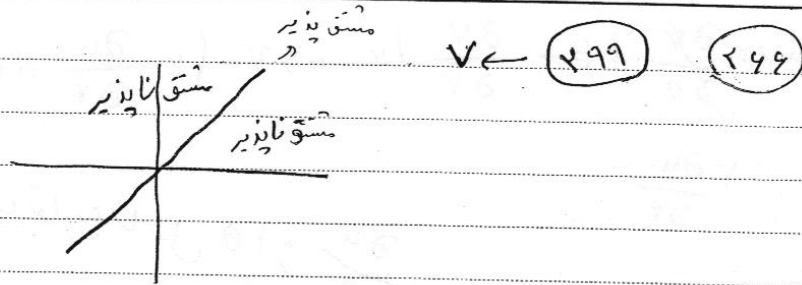 ۲۶۶ ۳۹۹ ← ۷
مشتق پذیر در
مشتق ناپذیر
مشتق ناپذیر